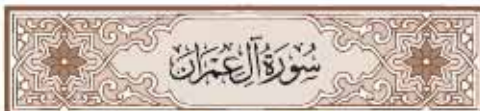 سُورَةُ آلِ عِمْرَان